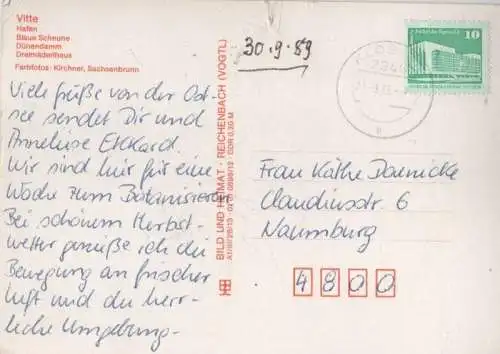 Vitte
Hafen
Blaue Scheune
Dünendamm
Dreimäderlhaus
Farbfotos: Kirchner, Sachsenbrunn
30.9.89
10
Viele Grüße von der Ost-
see sendet Dir und
Anneliese Ekkard.
Wir sind hier für eine
Woche zum Botanisieren
Bei schönem Herbst-
wetter genieße ich die
Bewegung an frischer
Luft und die herr-
liche Umgebung.
BILD UND HEIMAT · REICHENBACH (VOGTL)
DDR 0,20 M
Frau Käthe
Claudiusstr. 6
Naumburg
4800